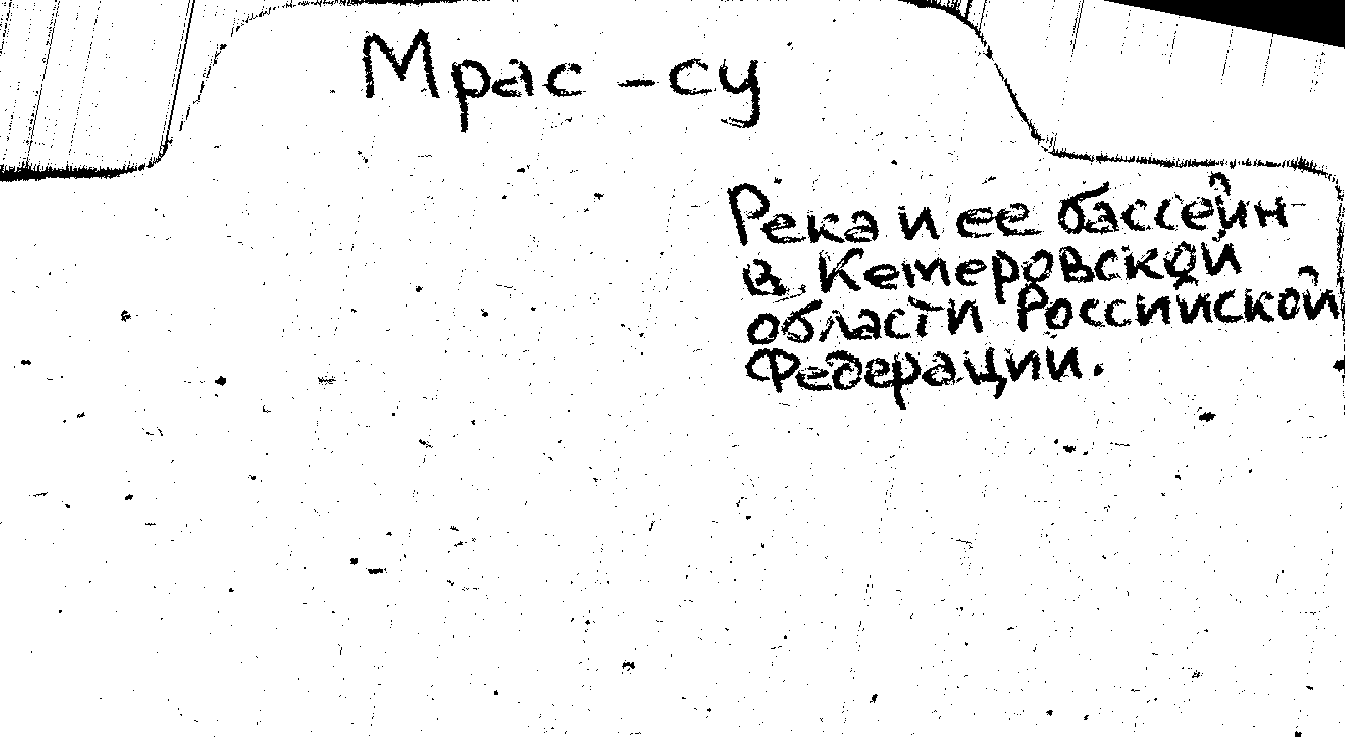 Мрас - су
Река и ее бассейн
в Кемеровской
области Российской
Федерации.